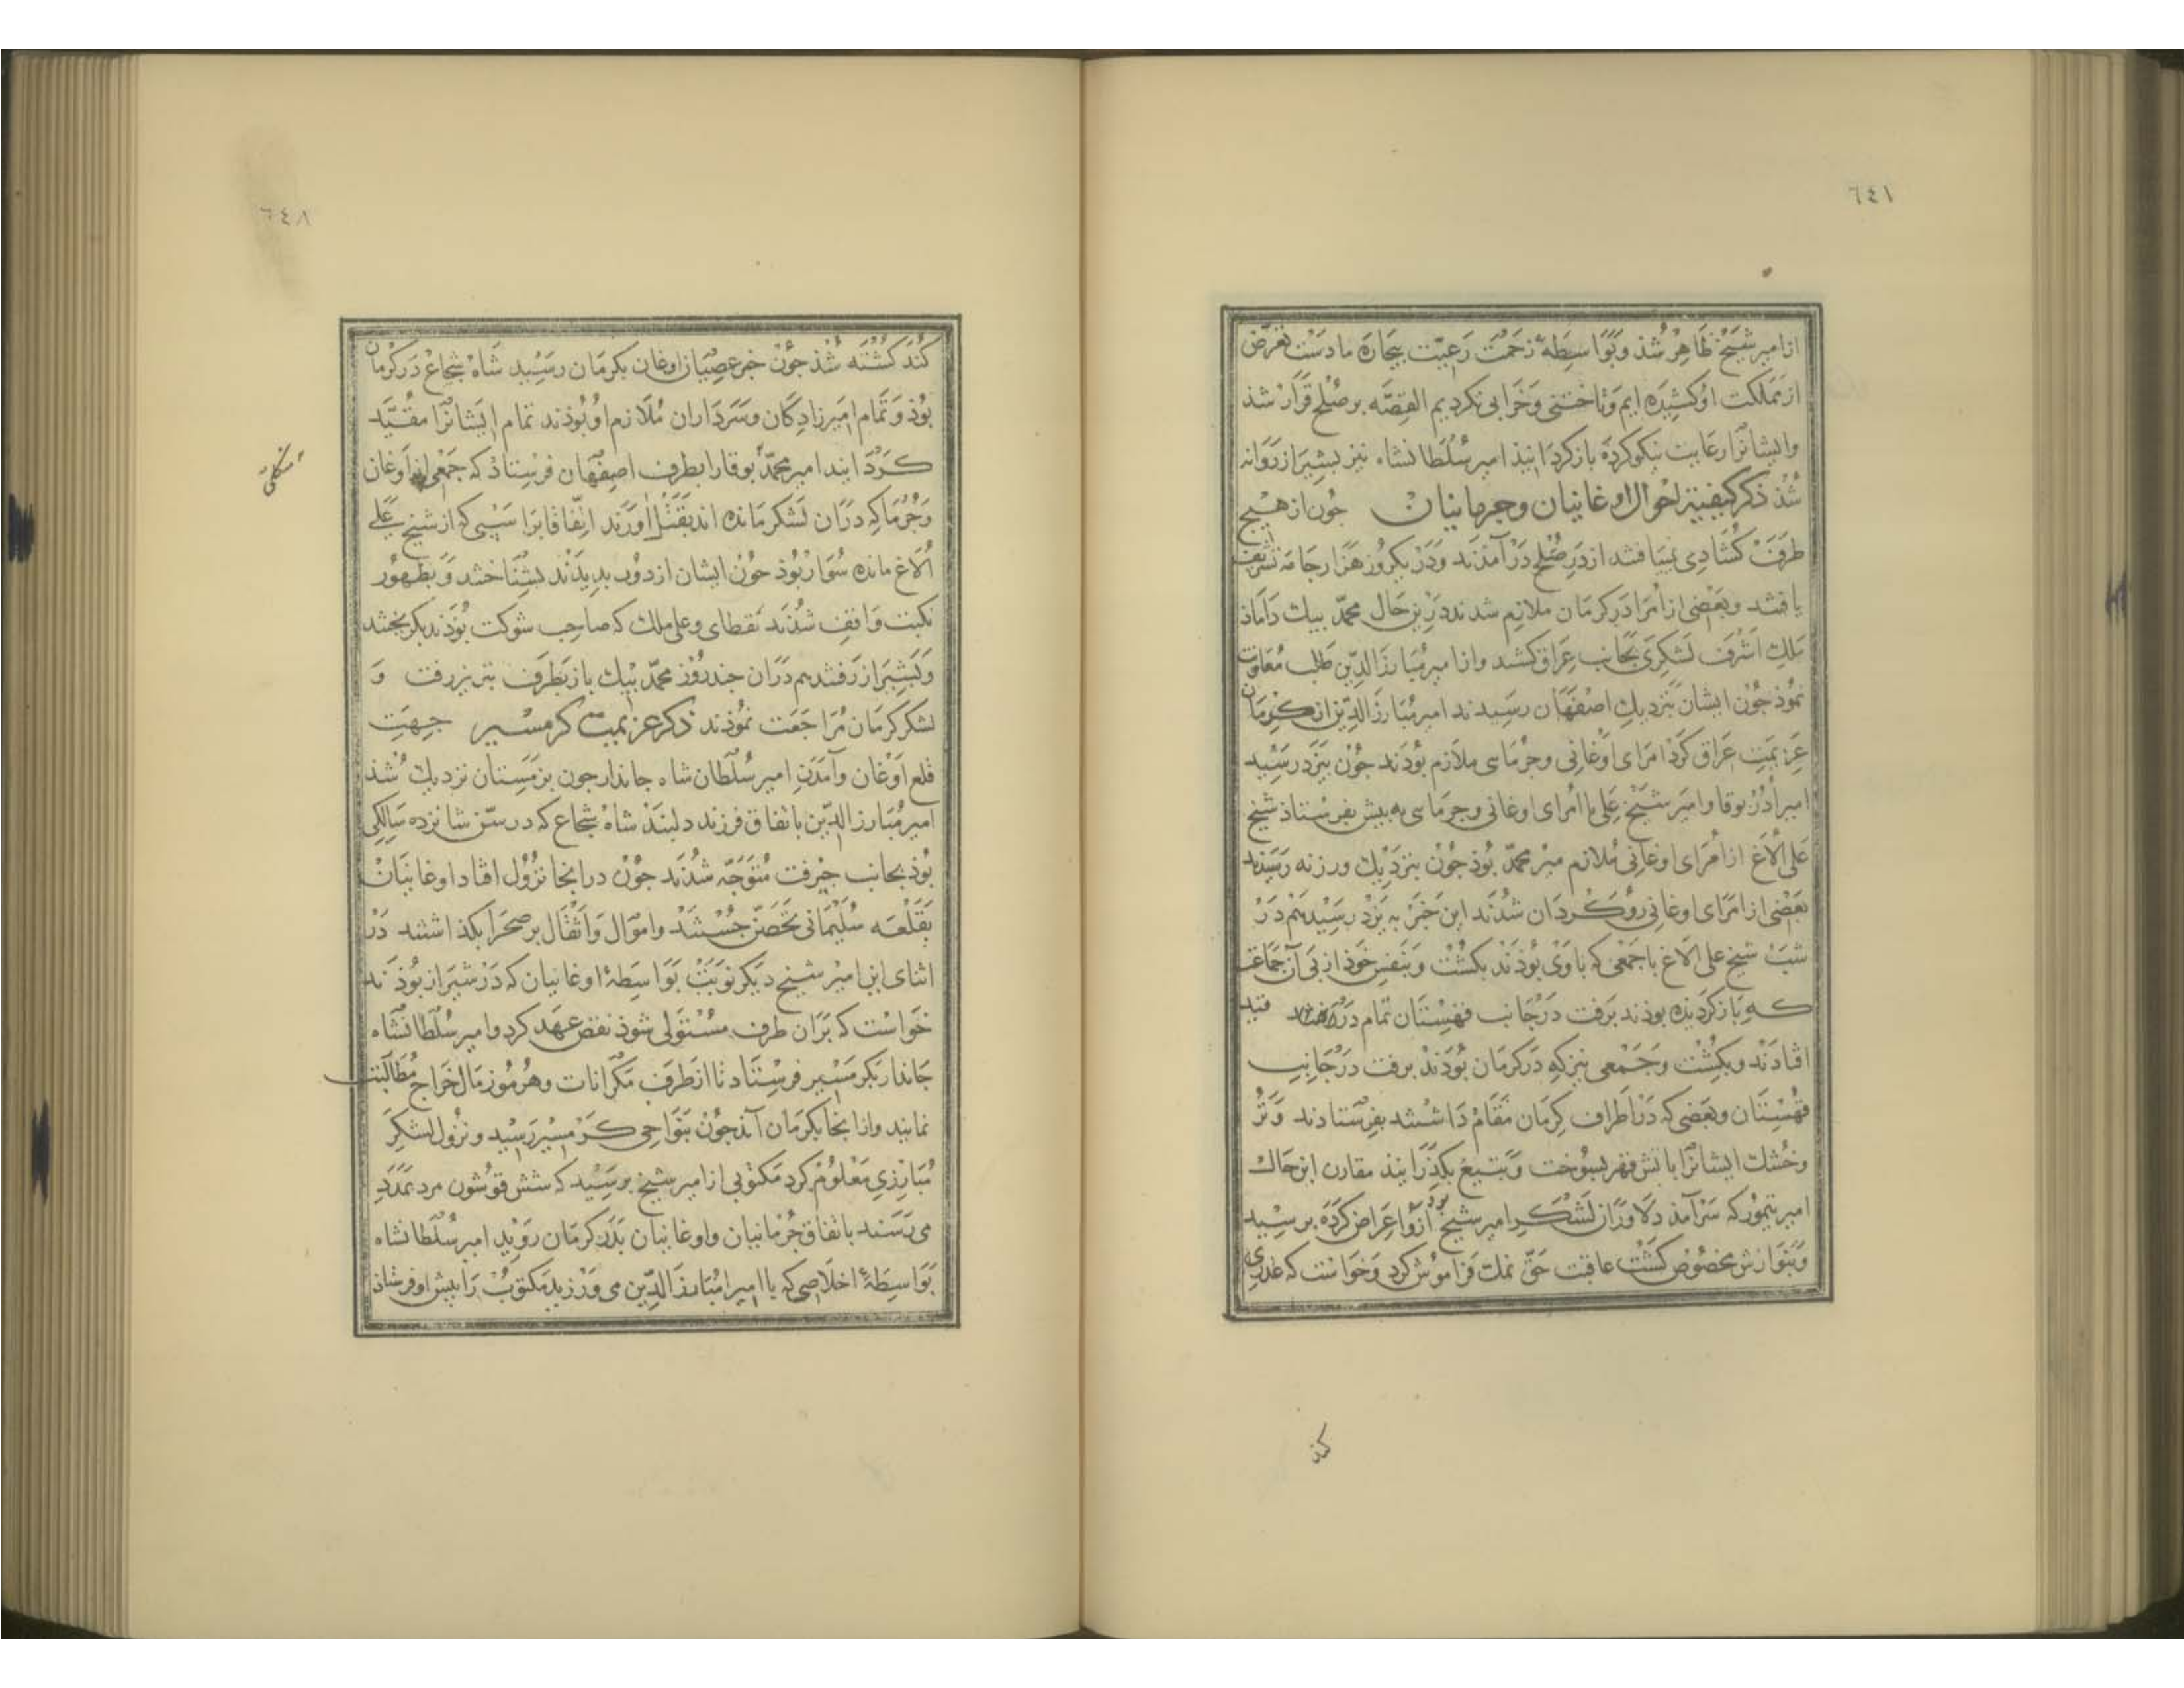 ٦٤١
از امیر شیخ ظاهر شذ و بواسطهٔ زحمت رعیّت بیچاره ما دست تعرّض
از مملکت او کشیده ایم و تاختنی و خرابی نکردیم القصّه بر صلح قرار شذ
و ایشانرا رعایت نیکو کرده باز کردانیذ امیر سلطانشاه نیز بشیراز روانه
شذ ذکر کیفیّة احوال اوغانیان و جرمانیان جون از هیچ
طرف کشادی نیافتند از در صلح در آمدند و در یکروز هزار جامه تشریف
یافتند و بعضی از امرا در کرمان ملازم شدند درین حال محمّد بیک داماذ
ملک اشرف لشکری بجانب عراق کشید و از امیر مبارز الدّین طلب معاونت
نموذ جون ایشان بنزدیک اصفهان رسیدند امیر مبارز الدّین از کرمان
عزیمت عراق کرد امرای اوغانی و جرمایی ملازم بوذند جون بیزد رسید
امیر ادر بوقا و امیر شیخ علی با امرای اوغانی و جرمایی به پیش بفرستاذ شیخ
علی الاغ از امرای اوغانی ملازم میر محمّد بوذ جون بنزدیک ورزنه رسیدند
بعضی از امرای اوغانی روکردان شدند این خبر به یزد رسید هم در
شب شیخ علی الاغ با جمعی که با وی بوذند بکشت و بنفس خوذ از پی آن جماعت
که باز کردیده بوذند برفت در جانب قهستان تمام در قید
افتادند و بکشت و جمعی نیز که در کرمان بوذند برفت در جانب
قهستان و بعضی که در اطراف کرمان مقام داشتند بفرستادند و تر
و خشک ایشانرا باتش قهر بسوخت و بتیغ بکذرانیذ مقارن این حال
امیر تیمور که سرآمذ دلاوران لشکر امیر شیخ بوذ ازو اعراض کرده برسید
و بنوازش مخصوص کشت عاقبت حقّ نمک فراموش کرد و خواست که غدری
کند
٦٤٨
کند کشته شذ جون خبر عصیان اوغان بکرمان رسید شاه شجاع در کرمان
بوذ و تمام امیرزادکان و سرداران ملازم او بوذند تمام ایشانرا مقیّد
کردانید امیر محمّد بوقا را بطرف اصفهان فرستاذ که جمعی از اوغان
و جرما که در آن لشکر مانده اند بقتل آورند اتّفاقا بر اسپی که از شیخ علی
الاغ مانده سوار بوذ جون ایشان از دور بدیدند بشناختند و بظهور
نکبت واقف شدند نقطای و علی ملک که صاحب شوکت بوذند بکریختند
و بشیراز رفتند هم در آن جند روز محمّد بیک باز بطرف تبریز رفت و
لشکر کرمان مراجعت نموذند ذکر عزیمت کرمسیر جهت
قلع اوغان و آمدن امیر سلطان شاه جاندار جون بزمستان نزدیک شذ
امیر مبارز الدّین باتفاق فرزند دلبند شاه شجاع که در سنّ شانزده سالکی
بوذ بجانب جیرفت متوجّه شدند جون در انجا نزول افتاد اوغانیان
بقلعه سلیمانی تحصّن جستند و اموال و اثقال بر صحرا بکذاشتند در
اثنای این امیر شیخ دیکر نوبت بواسطهٔ اوغانیان که در شیراز بوذند
خواست که بر آن طرف مستولی شوذ نقض عهد کرد و امیر سلطانشاه
جاندار بکرمسیر فرستاد تا از طرف مکرانات و هرموز مال خراج مطالبت
نماید و از انجا بکرمان آید جون بنواحی کرمسیر رسید و نزول لشکر
مبارزی معلوم کرد مکتوبی از امیر شیخ برسید که شش قوشون مرد بمدد
می رسند باتفاق جرمانیان و اوغانیان بدر کرمان روید امیر سلطانشاه
بواسطهٔ اخلاصی که با امیر مبارز الدّین می ورزید مکتوب را پیش او فرستاذ